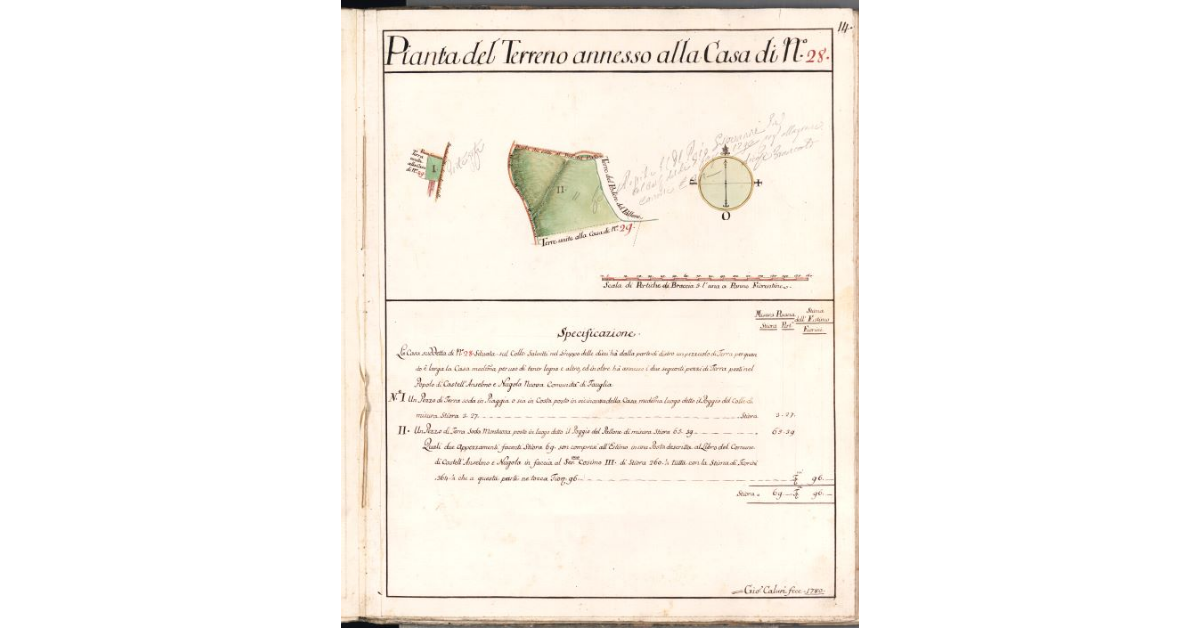 14.
Pianta del Terreno annesso alla Casa di N.º 28.
Terra
unita
alla Casa
di Nº 29
I
II
Terre del Podere del Pillone
Terre unite alla Casa di Nº 29.
P
O
Scala di Pertiche di Braccia 5 l'una a Panno Fiorentino.
Misura Presente
Stiora Per.
Stiora
dell'Estimo
Fiorini
Specificazione.
La Casa suddetta di Nº 28 Situata sul Colle Salvetti nel Gruppo delle dieci hà dalla parte di dietro un pezzuolo di Terra per quan
do è larga la Casa medesima per uso di tener legna e altro, ed in oltre hà annessi i due seguenti pezzi di Terra posti nel
Popolo di Castell' Anselmo e Nugola Nuova Comunità di Fauglia
N.º I Un Pezzo di Terra soda in Piaggia o sia in Costa posto in vicinanza della Casa medesima luogo detto il Poggio del Colle di
misura Stiora 3. 27. Stiora 3. 27.
II. Un Pezzo di Terra Soda Montuosa posto in luogo detto il Poggio del Pillone di misura Stiora 65. 39 65. 39
Quali due Appezzamenti facenti Stiora 69. son compresi all'Estimo in una Posta descritta al Libro del Comune
di Castell' Anselmo e Nugola in faccia al Ser.mo Cosimo III. di Stiora 260. tutta con la Stiora di Fiorini
264. che a questa parti ne tocca Fiorini 96 96.
Stiora 69. 96.
Gio: Caluri fece 1780.